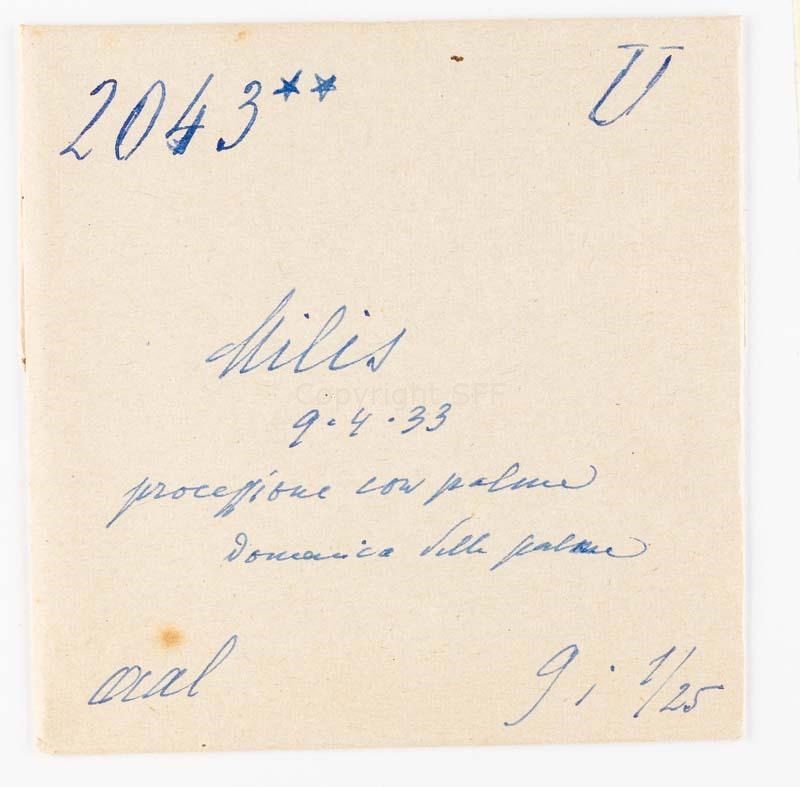 2043** U
Milis
Copyright SFF
9.4.33
processione con palme
Domenica delle palme
9 i 1/25